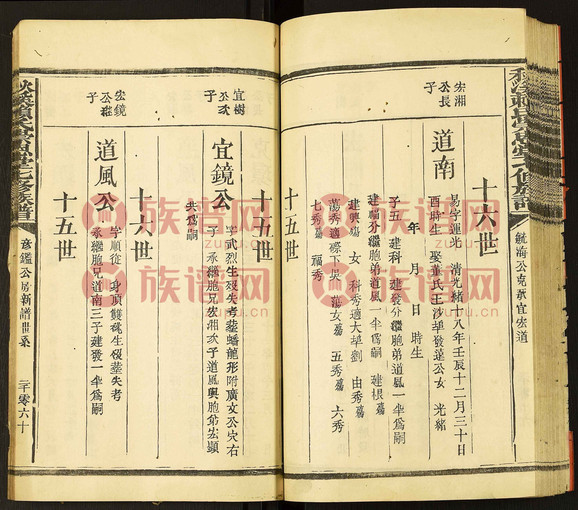 毓海公克承宜宏道
十六世
宏湘公長子
道南
易字運光 清光緒十八年壬辰十二月三十日
酉時生 娶董氏王沙華發蓮公女 光緒
年 月 日 時生
子五 建科 建發分繼胞弟道風一伞爲嗣
建福分繼胞弟道風一伞爲嗣 建根殤
建興殤 女 秀適大华劉 由秀殤
菊秀適 蘭女殤 五秀殤 六秀
七秀殤 福秀
十五世
十五世
宜樹公次子
宜鏡公
字武烈生歿失考葬蟠龍形附廣文公穴右
子 承繼胞兄宏湘次子道風與胞弟宏顯
共爲嗣
十六世
宏鏡公繼子
道風公
字順從 身頂雙祧生歿葬失考
承繼胞兄道南三子建發一伞爲嗣
十五世
彥鑑公房新譜世系
族谱网
www.zupu.cn